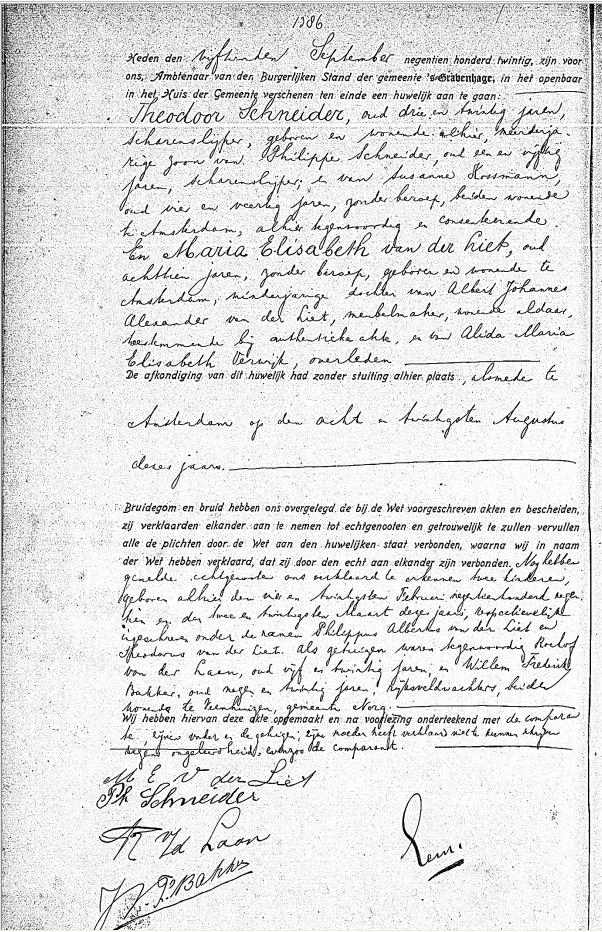 1386
Heden den vijftienden September negentien honderd twintig, zijn voor
ons, Ambtenaar van den Burgerlijken Stand der gemeente 's-Gravenhage, in het openbaar
in het Huis der Gemeente verschenen ten einde een huwelijk aan te gaan:
Theodoor Schneider, oud drie en twintig jaren,
scharenslijper, geboren en wonende alhier, meerderja-
rige zoon van Philippe Schneider, oud een en vijftig
jaren, scharenslijper, en van Susanne Kossmann,
oud vier en veertig jaren, zonder beroep, beiden wonende
te Amsterdam, alhier tegenwoordig en consenteerende.
En Maria Elisabeth van der Liet, oud
achttien jaren, zonder beroep, geboren en wonende te
Amsterdam, minderjarige dochter van Albert Johannes
Alexander van der Liet, meubelmaker, wonende aldaar,
toestemmende bij authentieke akte, en van Alida Maria
Elisabeth Verwijk, overleden
De afkondiging van dit huwelijk had zonder stuiting alhier plaats, alsmede te
Amsterdam op den acht en twintigsten Augustus
dezes jaars.
Bruidegom en bruid hebben ons overgelegd de bij de Wet voorgeschreven akten en bescheiden,
zij verklaarden elkander aan te nemen tot echtgenooten en getrouwelijk te zullen vervullen
alle de plichten door de Wet aan den huwelijken staat verbonden, waarna wij in naam
der Wet hebben verklaard, dat zij door den echt aan elkander zijn verbonden. Nog hebben
gemelde echtgenooten ons verklaard te erkennen twee kinderen,
geboren alhier den vier en twintigsten Februari negentienhonderd negen-
tien en den twee en twintigsten Maart dezes jaars, respectievelijk
ingeschreven onder de namen Philippus Albertus van der Liet en
Theodorus van der Liet. Als getuigen waren tegenwoordig Roelof
van der Laan, oud vijf en twintig jaren, en Willem Frederik
Bakker, oud negen en twintig jaren, rijksveldwachters, beiden
wonende te Veenhuizen, gemeente Norg.
Wij hebben hiervan deze akte opgemaakt en na voorlezing onderteekend met de comparan
te, zijnen vader en de getuigen; zijne moeder heeft verklaard niet te kunnen schrijven
wegens ongeleerdheid, evenzoo de comparant.
M E V der Liet
Ph Schneider
R v/d Laan
Bakker